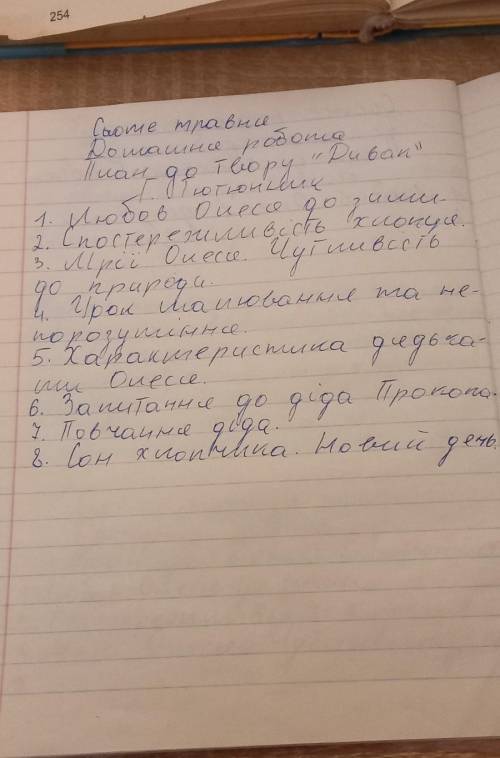 254
Сьоме травня
Домашня робота
План до твору "Дивак"
Г. Тютюнник
1. Любов Олеся до зими.
2. Спостережливість хлопця.
3. Мрії Олеся. Чутливість
до природи.
4. Урок малювання та не-
порозуміння.
5. Характеристика дядька-
ми Олеся.
6. Запитання до діда Прокопа.
7. Повчання діда.
8. Сон хлопчика. Новий день.